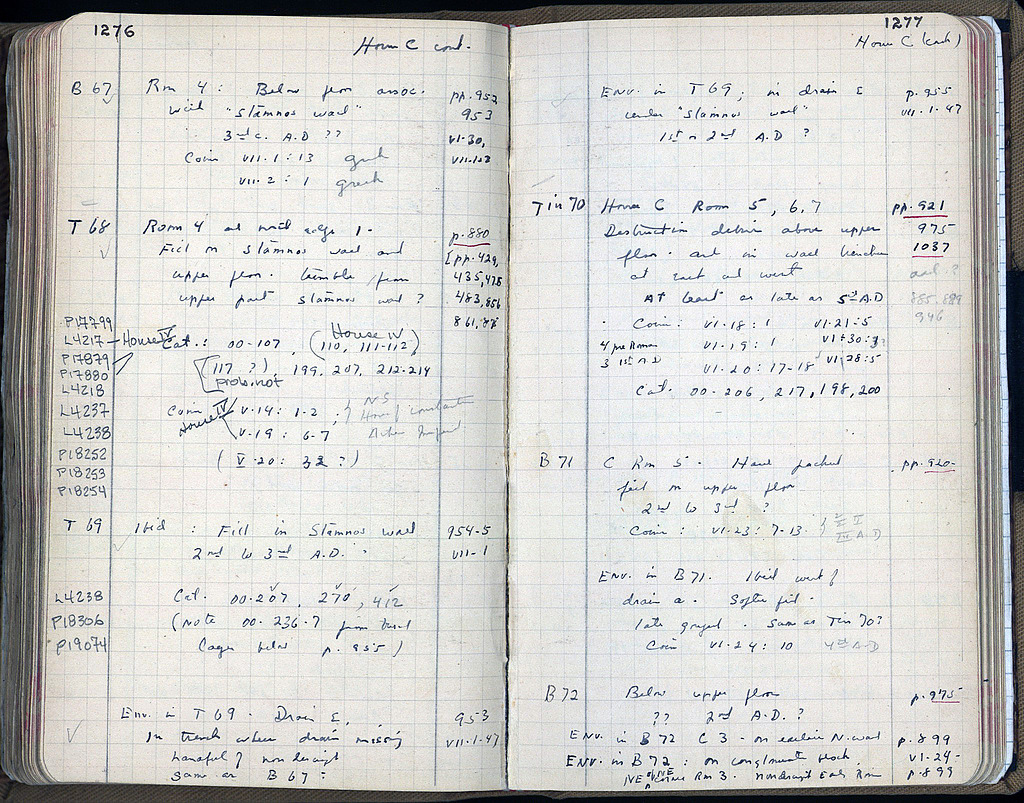 1276
House C cont.
B 67 Rm 4 : Below floor assoc. pp. 952
with "Stamnos wall" 953
3rd c. A.D ?? VI-30,
Coin VII.1 : 13 greek VII-1-2
VII-2 : 1 greek
T 68 Room 4 at west edge p. 880
Fill on Stamnos wall and [pp. 429,
upper floor. tumble from 435, 478
upper part stamnos wall ? 483, 856
P17799 861, 87
House IV
L4217 House IV Cat. : 00-107, (110, 111-112)
P17879
P17880 (117 ?), 199, 207, 212-214
probs. not
L4218
L4237 Coin House IV V-14 : 1-2, N S
House of Constantine
L4238 V-19 : 6-7
P18252 ( V-20 : 32 ? )
P18253
P18254
T 69 Ibid : Fill in Stamnos wall 954-5
2nd to 3rd A.D. VII-1
L4238 Cat. 00-207, 270, 412
P18306 (Note 00. 236-7 from
P19074 below p. 955 )
Env. in T 69 . Drain E, 953
In trench where drain missing VII-1-47
handful of nondescript
same as B 67 :
1277
House C (cont)
ENV. in T 69, in drain E p. 955
under "Stamnos wall" VII-1-47
1st or 2nd A.D ?
T in 70 House C Room 5, 6, 7 pp. 921
Destruction debris above upper 975
floor. and in wall trenches 1037
at east and west
At least as late as 5th A.D 885, 889
Coins : VI-18 : 1 VI-21 : 5 946
4 pre Roman VI-19 : 1 VI-30 : 3
3 1st A D VI-20 : 17-18 VI-28 : 5
Cat. 00-206, 217, 198, 200
B 71 C Rm 5 . Hard packed pp. 920-
fill on upper floor
2nd to 3rd ?
Coins : VI-23 : 7-13. III A.D
ENV. in B 71. Ibid west of
drain a . Softer fill .
late . same as T in 70?
Coin VI-24 : 10 4th A.D
B 72 Below upper floor p. 975
?? 2nd A.D. ?
ENV. in B 72 C 3 - on earlier N. wall p. 899
ENV. in B 72 : on conglomerate block, VI-24-
NE of NE corner Rm 3. nondescript Early Rom p. 899